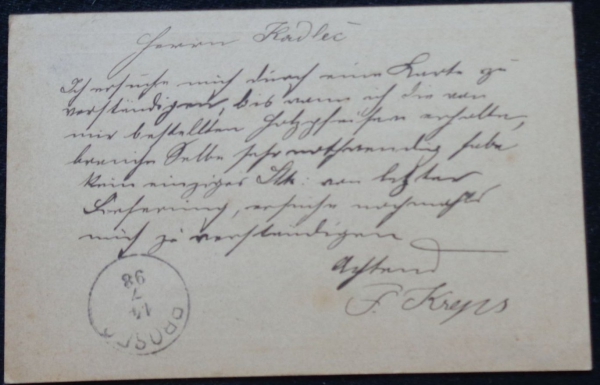 Herrn Kadleč
Ich ersuche mich durch eine Karte zu
verständigen, bis wann ich die von
mir bestellten Holzpfeifen erhalte,
brauche Selbe sehr nothwendig habe
kein einziges Stk: von letzter
Lieferung, ersuche nochmals
mich zu verständigen
Achtend
F. Kreps
14
7
98